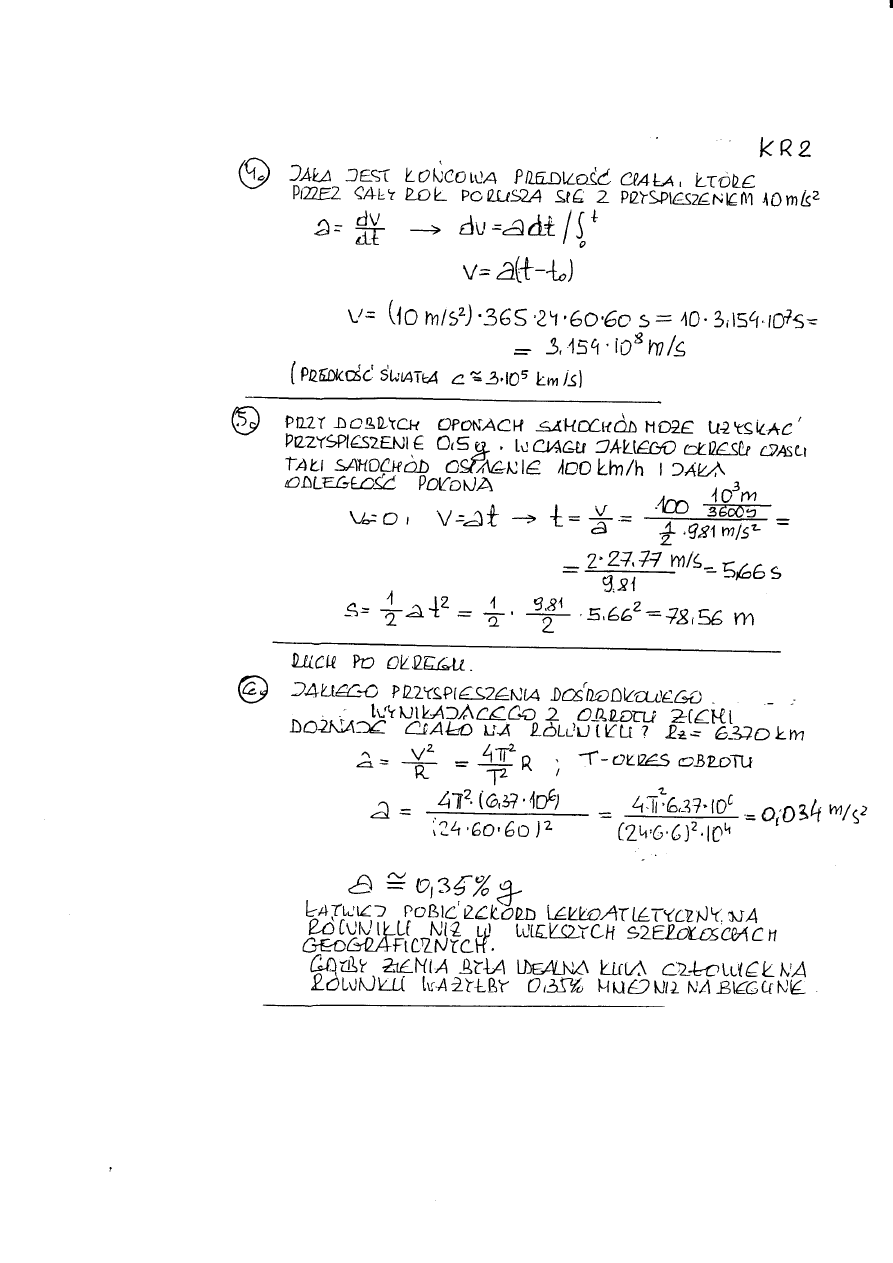 KR2
4. JAKA JEST KOŃCOWA PRĘDKOŚĆ CIAŁA, KTÓRE
PRZEZ CAŁY ROK PORUSZA SIĘ Z PRZYSPIESZENIEM 10 m/s²
a = dv/dt → dv = a dt / ∫₀ᵗ
v = a(t-t₀)
v = (10 m/s²)·365·24·60·60 s = 10·3,154·10⁷ s =
= 3,154·10⁸ m/s
(PRĘDKOŚĆ ŚWIATŁA c ≅ 3·10⁵ km/s)
5. PRZY DOBRYCH OPONACH SAMOCHÓD MOŻE UZYSKAĆ
PRZYSPIESZENIE 0,5 g. W CIĄGU JAKIEGO OKRESU CZASU
TAKI SAMOCHÓD OSIĄGNIE 100 km/h I JAKĄ
ODLEGŁOŚĆ POKONA
V₀=0, V=at → t = v/a = (100 10³m/3600s)/(1/2 · 9.81 m/s²) =
= (2·27,77 m/s)/9,81 = 5,66 s
s = 1/2 a t² = 1/2 · 9,81/2 · 5,66² = 78,56 m
RUCH PO OKRĘGU.
6. JAKIEGO PRZYSPIESZENIA DOŚRODKOWEGO
WYNIKAJĄCEGO Z OBROTU ZIEMI
DOZNAJE CIAŁO NA RÓWNIKU? Rz = 6370 km
a = V²/R = 4π²/T² R ; T-OKRES OBROTU
a = 4π²·(6,37·10⁶)/(24·60·60)² = 4π²·6,37·10⁶/(24·6·6)²·10⁴ = 0,034 m/s²
a ≅ 0,35% g
ŁATWIEJ POBIĆ REKORD LEKKOATLETYCZNY NA
RÓWNIKU NIŻ W WIĘKSZYCH SZEROKOŚCIACH
GEOGRAFICZNYCH.
GDYBY ZIEMIA BYŁA IDEALNĄ KULĄ CZŁOWIEK NA
RÓWNIKU WAŻYŁBY 0,35% MNIEJ NIŻ NA BIEGUNIE